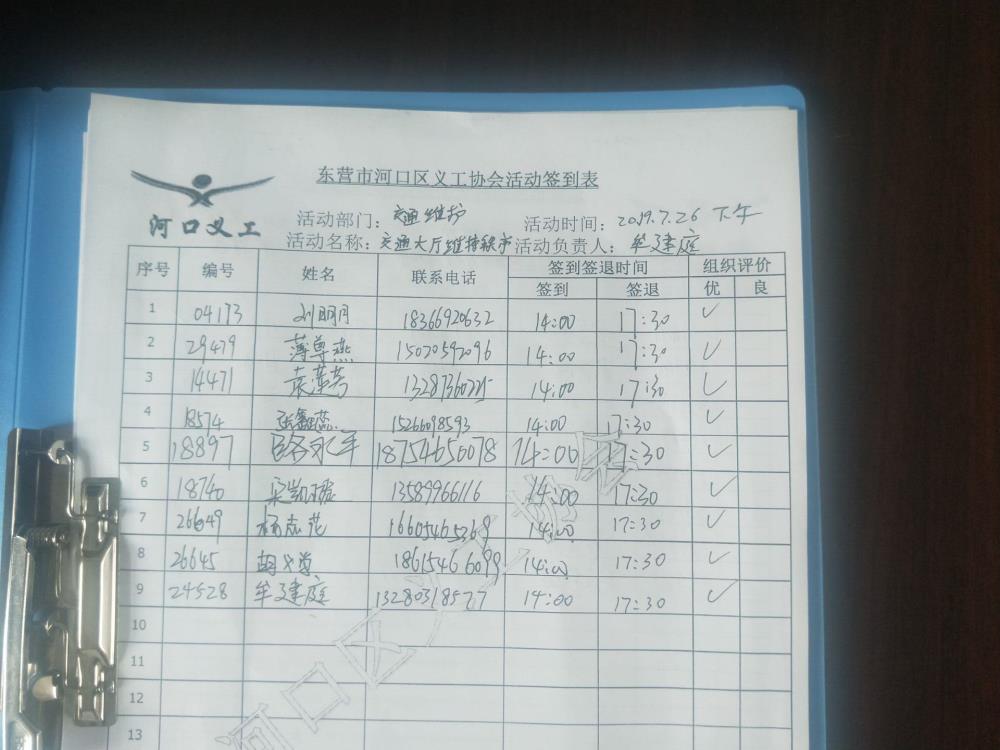 东营市河口区义工协会活动签到表
河口义工
活动部门：交通维护 活动时间：2019.7.26 下午
活动名称：交通大厅维持秩序 活动负责人：牟建庭
序号 编号 姓名 联系电话 签到签退时间 组织评价
签到 签退 优 良
1 04173 刘明月 18366920632 14:00 17:30 ✓
2 29479 薄尊燕 15020592096 14:00 17:30 ✓
3 14471 袁莲芳 14:00 17:30 ✓
4 18574 15266098593 14:00 17:30 ✓
5 18897 路永军 18754656078 14:00 17:30 ✓
6 18740 13589966116 14:00 17:30 ✓
7 26649 杨志花 16605465369 14:00 17:30 ✓
8 26645 18615466099 14:00 17:30 ✓
9 24528 牟建庭 13280318577 14:00 17:30 ✓
10
11
12
13
河口区义工协会